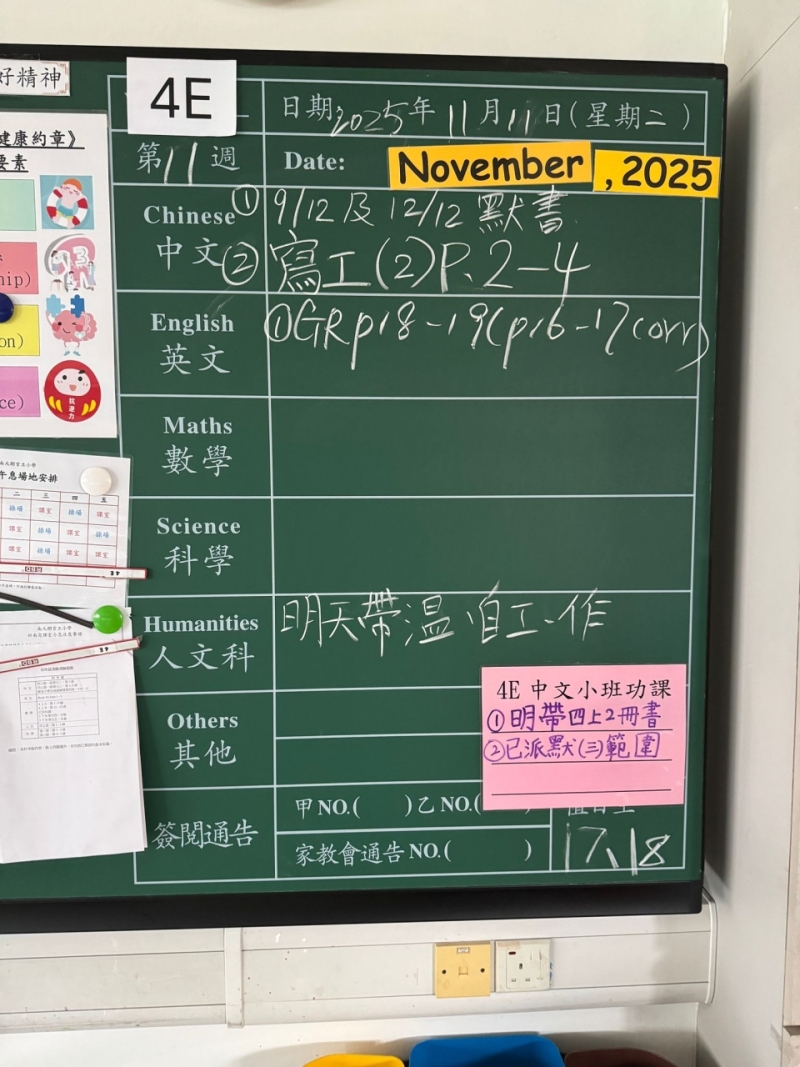 好精神
4E
日期2025年11月11日(星期二)
第11週
Date: November, 2025
健康約章》
要素
Chinese
中文
①9/12及12/12默書
②寫工(2)P.2-4
English
英文
①GRp18-19(p16-17corr)
hip)
on)
ce)
抗逆力
Maths
數學
Science
科學
Humanities
人文科
明天帶溫
工作
Others
其他
4E中文小班功課
①明帶四上2冊書
②已派默(三)範圍
簽閱通告
甲NO.( )乙NO.(
家教會通告NO.( )
值日生
17、18
息場地安排
二 三 四 五
操場 課室 操場 課室
課室 操場 課室 操場
課室 操場 課室 課室
4E
4E